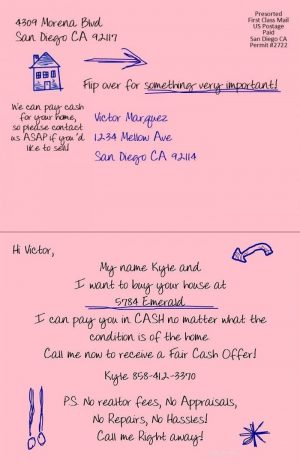 4309 Morena Blvd
San Diego CA 92117
Presorted
First Class Mail
US Postage
Paid
San Diego CA
Permit #2722
Flip over for something very important!
We can pay cash
for your home,
so please contact
us ASAP if you'd
like to sell!
Victor Marquez
1234 Mellow Ave
San Diego CA 92114
Hi Victor,
My name Kyle and
I want to buy your house at
5784 Emerald
I can pay you in CASH no matter what the
condition is of the home
Call me now to receive a Fair Cash Offer!
Kyle 858-412-3370
P.S. No realtor fees, No Appraisals,
No Repairs, No Hassles!
Call me Right away!